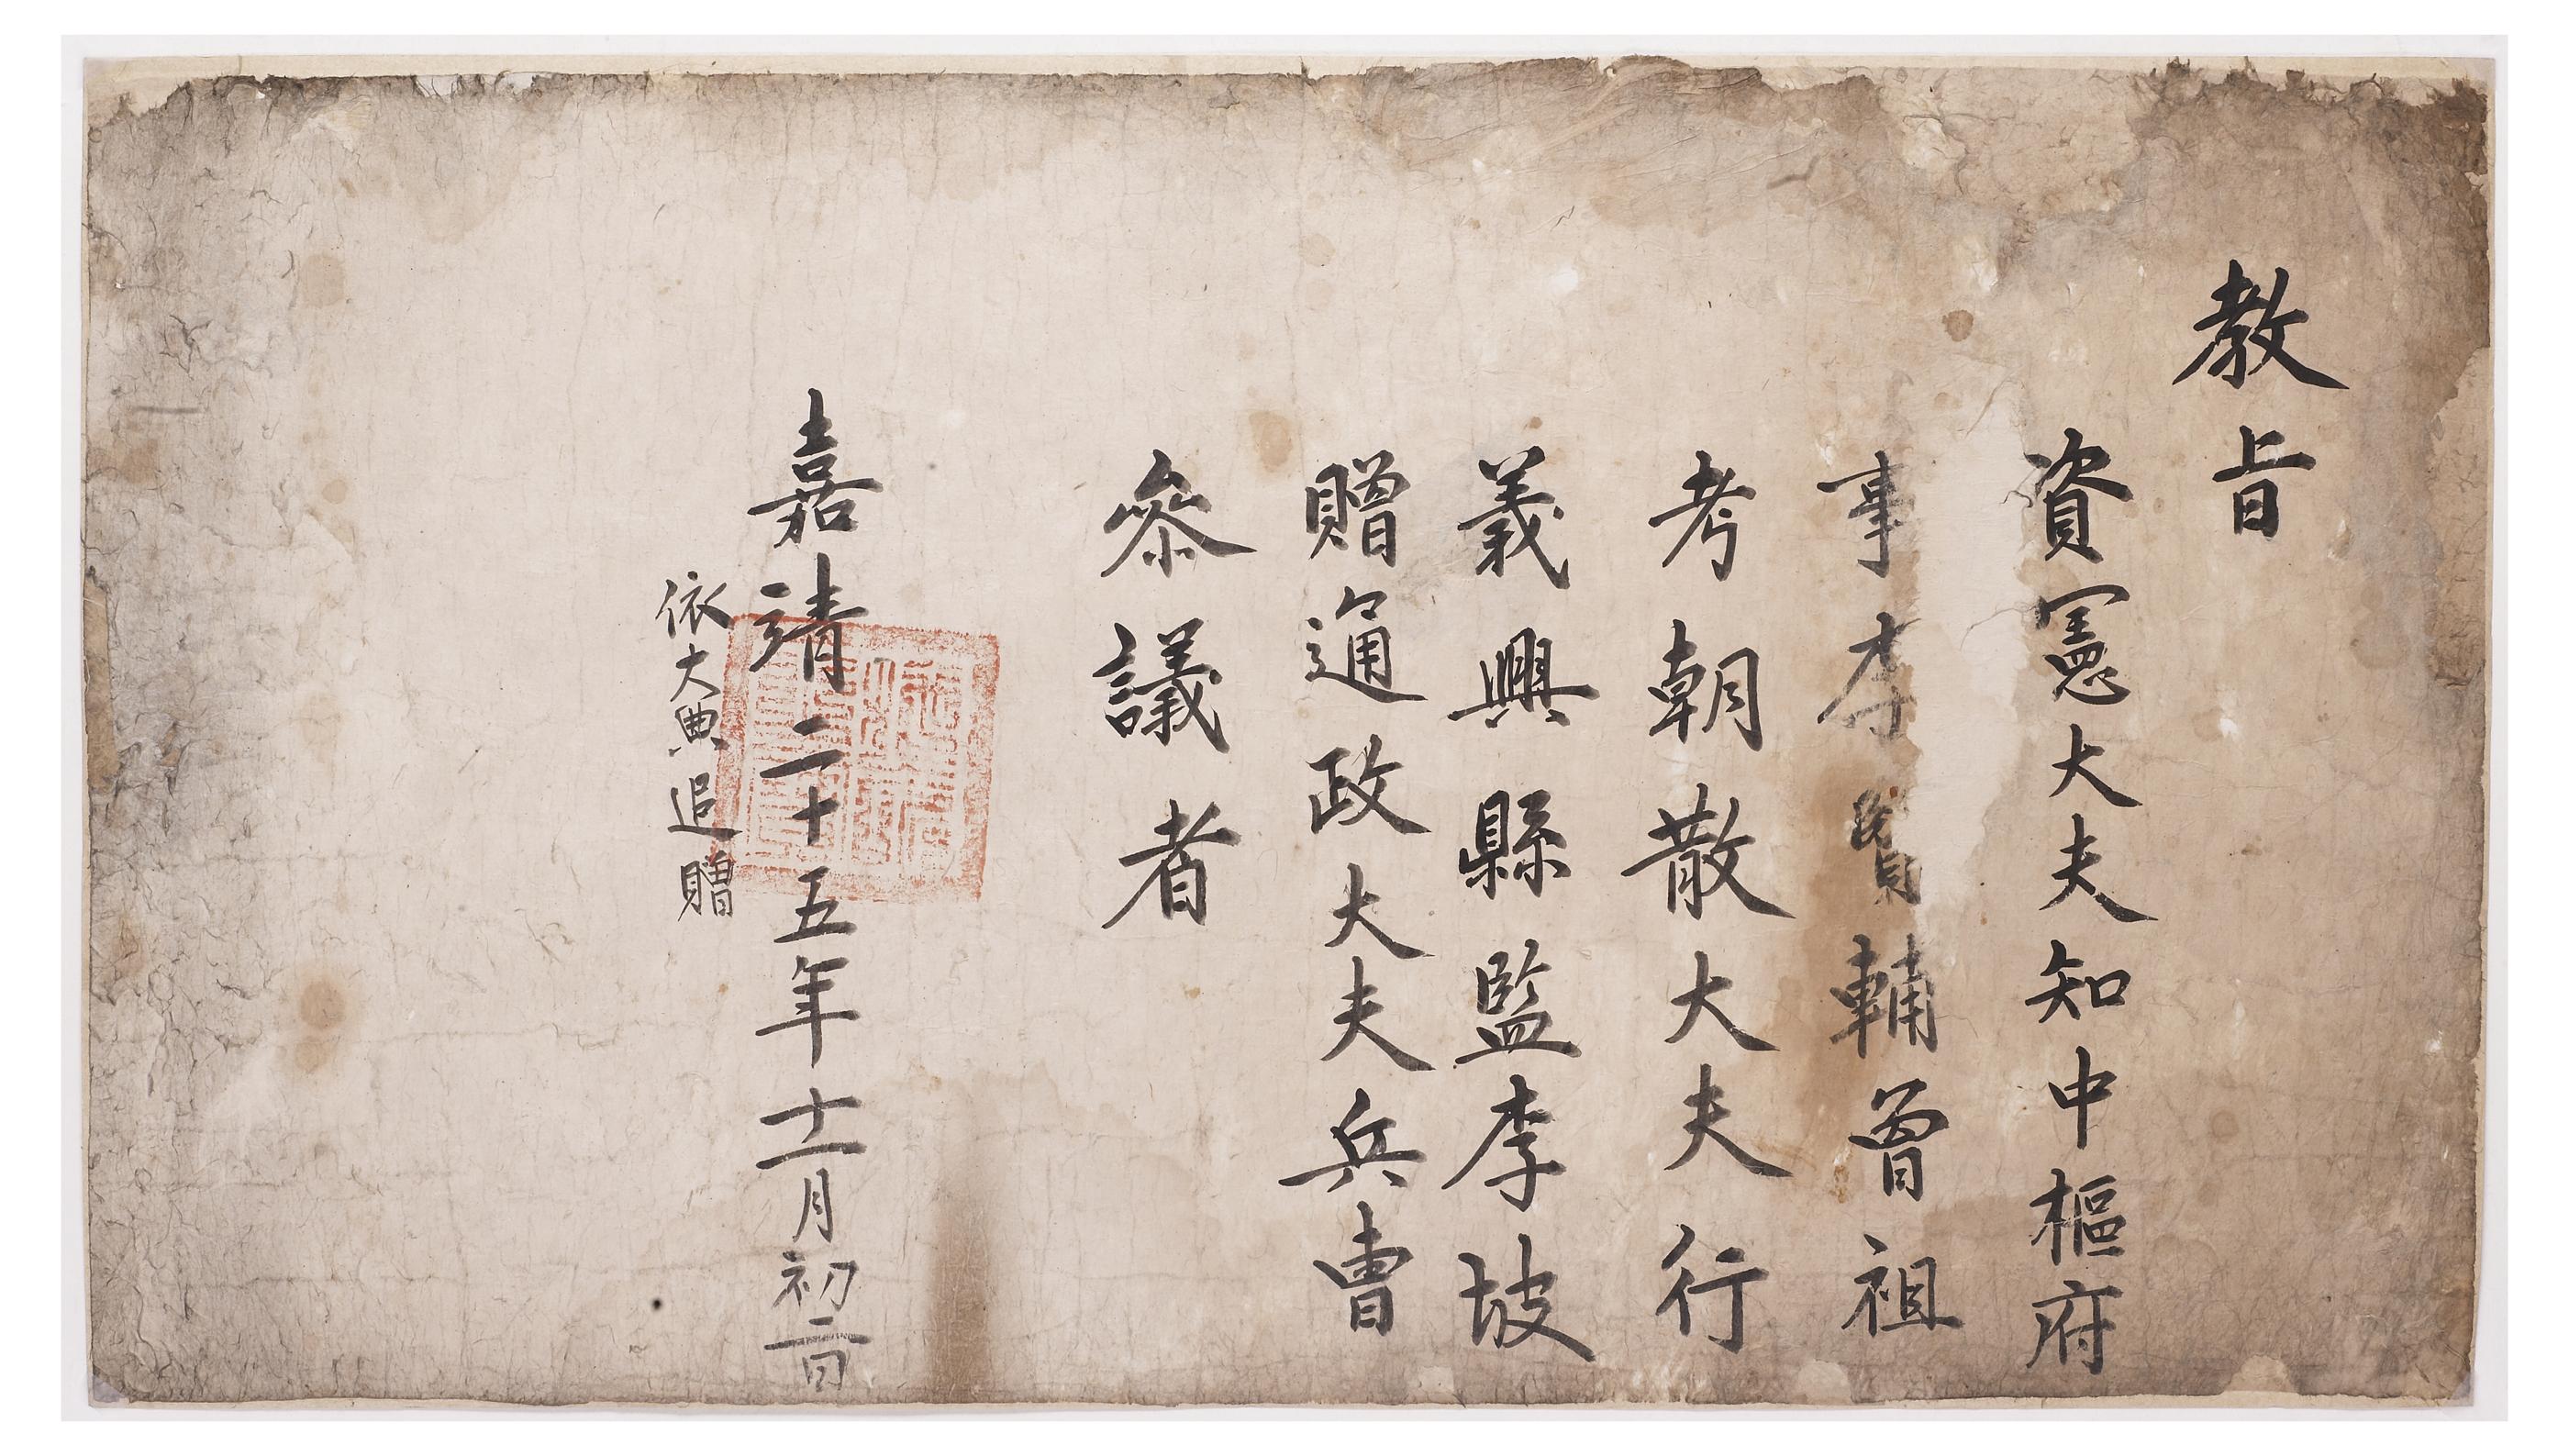 教旨
資憲大夫知中樞府
事李賢輔曾祖
考朝散大夫行
義興縣監李坡
贈通政大夫兵曹
叅議者
嘉靖二十五年十一月初二日
依大典追贈